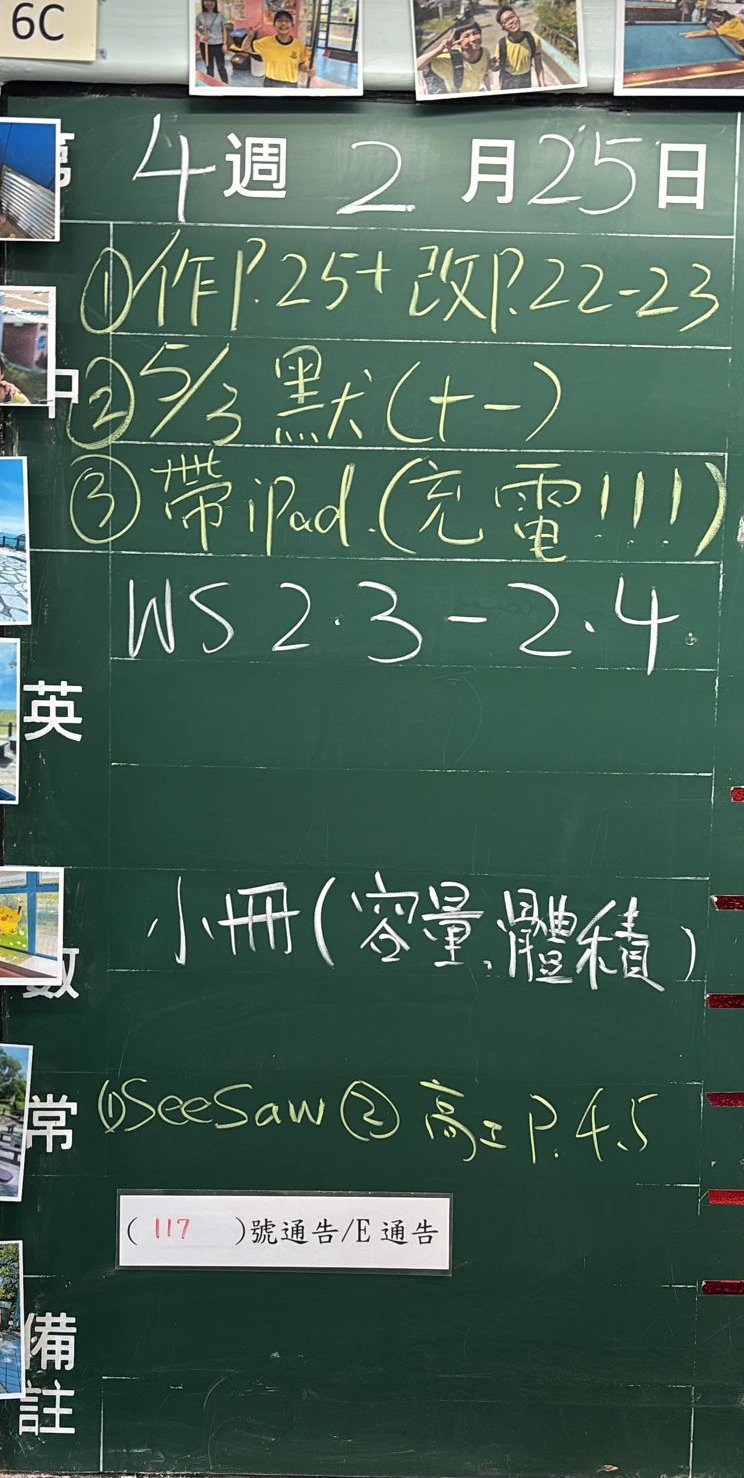 6C
第 4 週 2 月 25 日
中
①作P.25+改P.22-23
②5/3 默(十一)
③帶iPad.(充電!!!)
英
WS 2.3-2.4.
數
小冊(容量、體積)
常
①SeeSaw ② 高工P.4,5
(117)號通告/E通告
備註